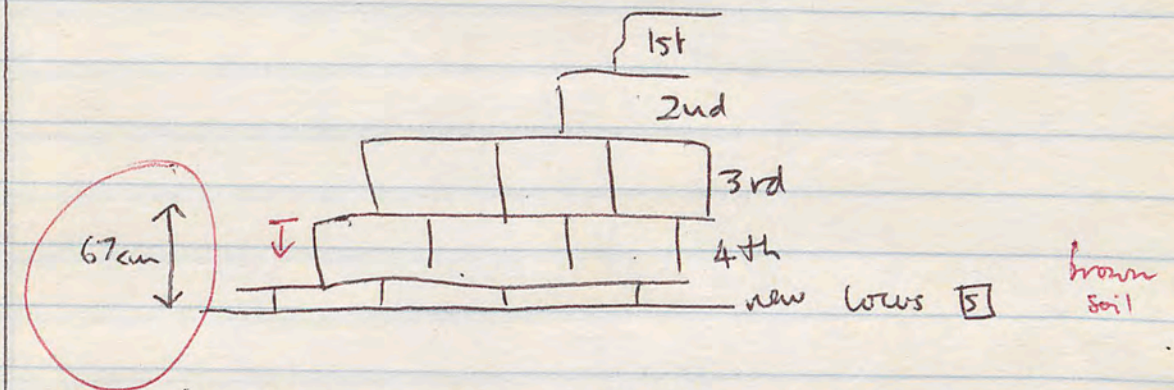 1st
2nd
3rd
67cm
4th
new locus 5
brown
soil